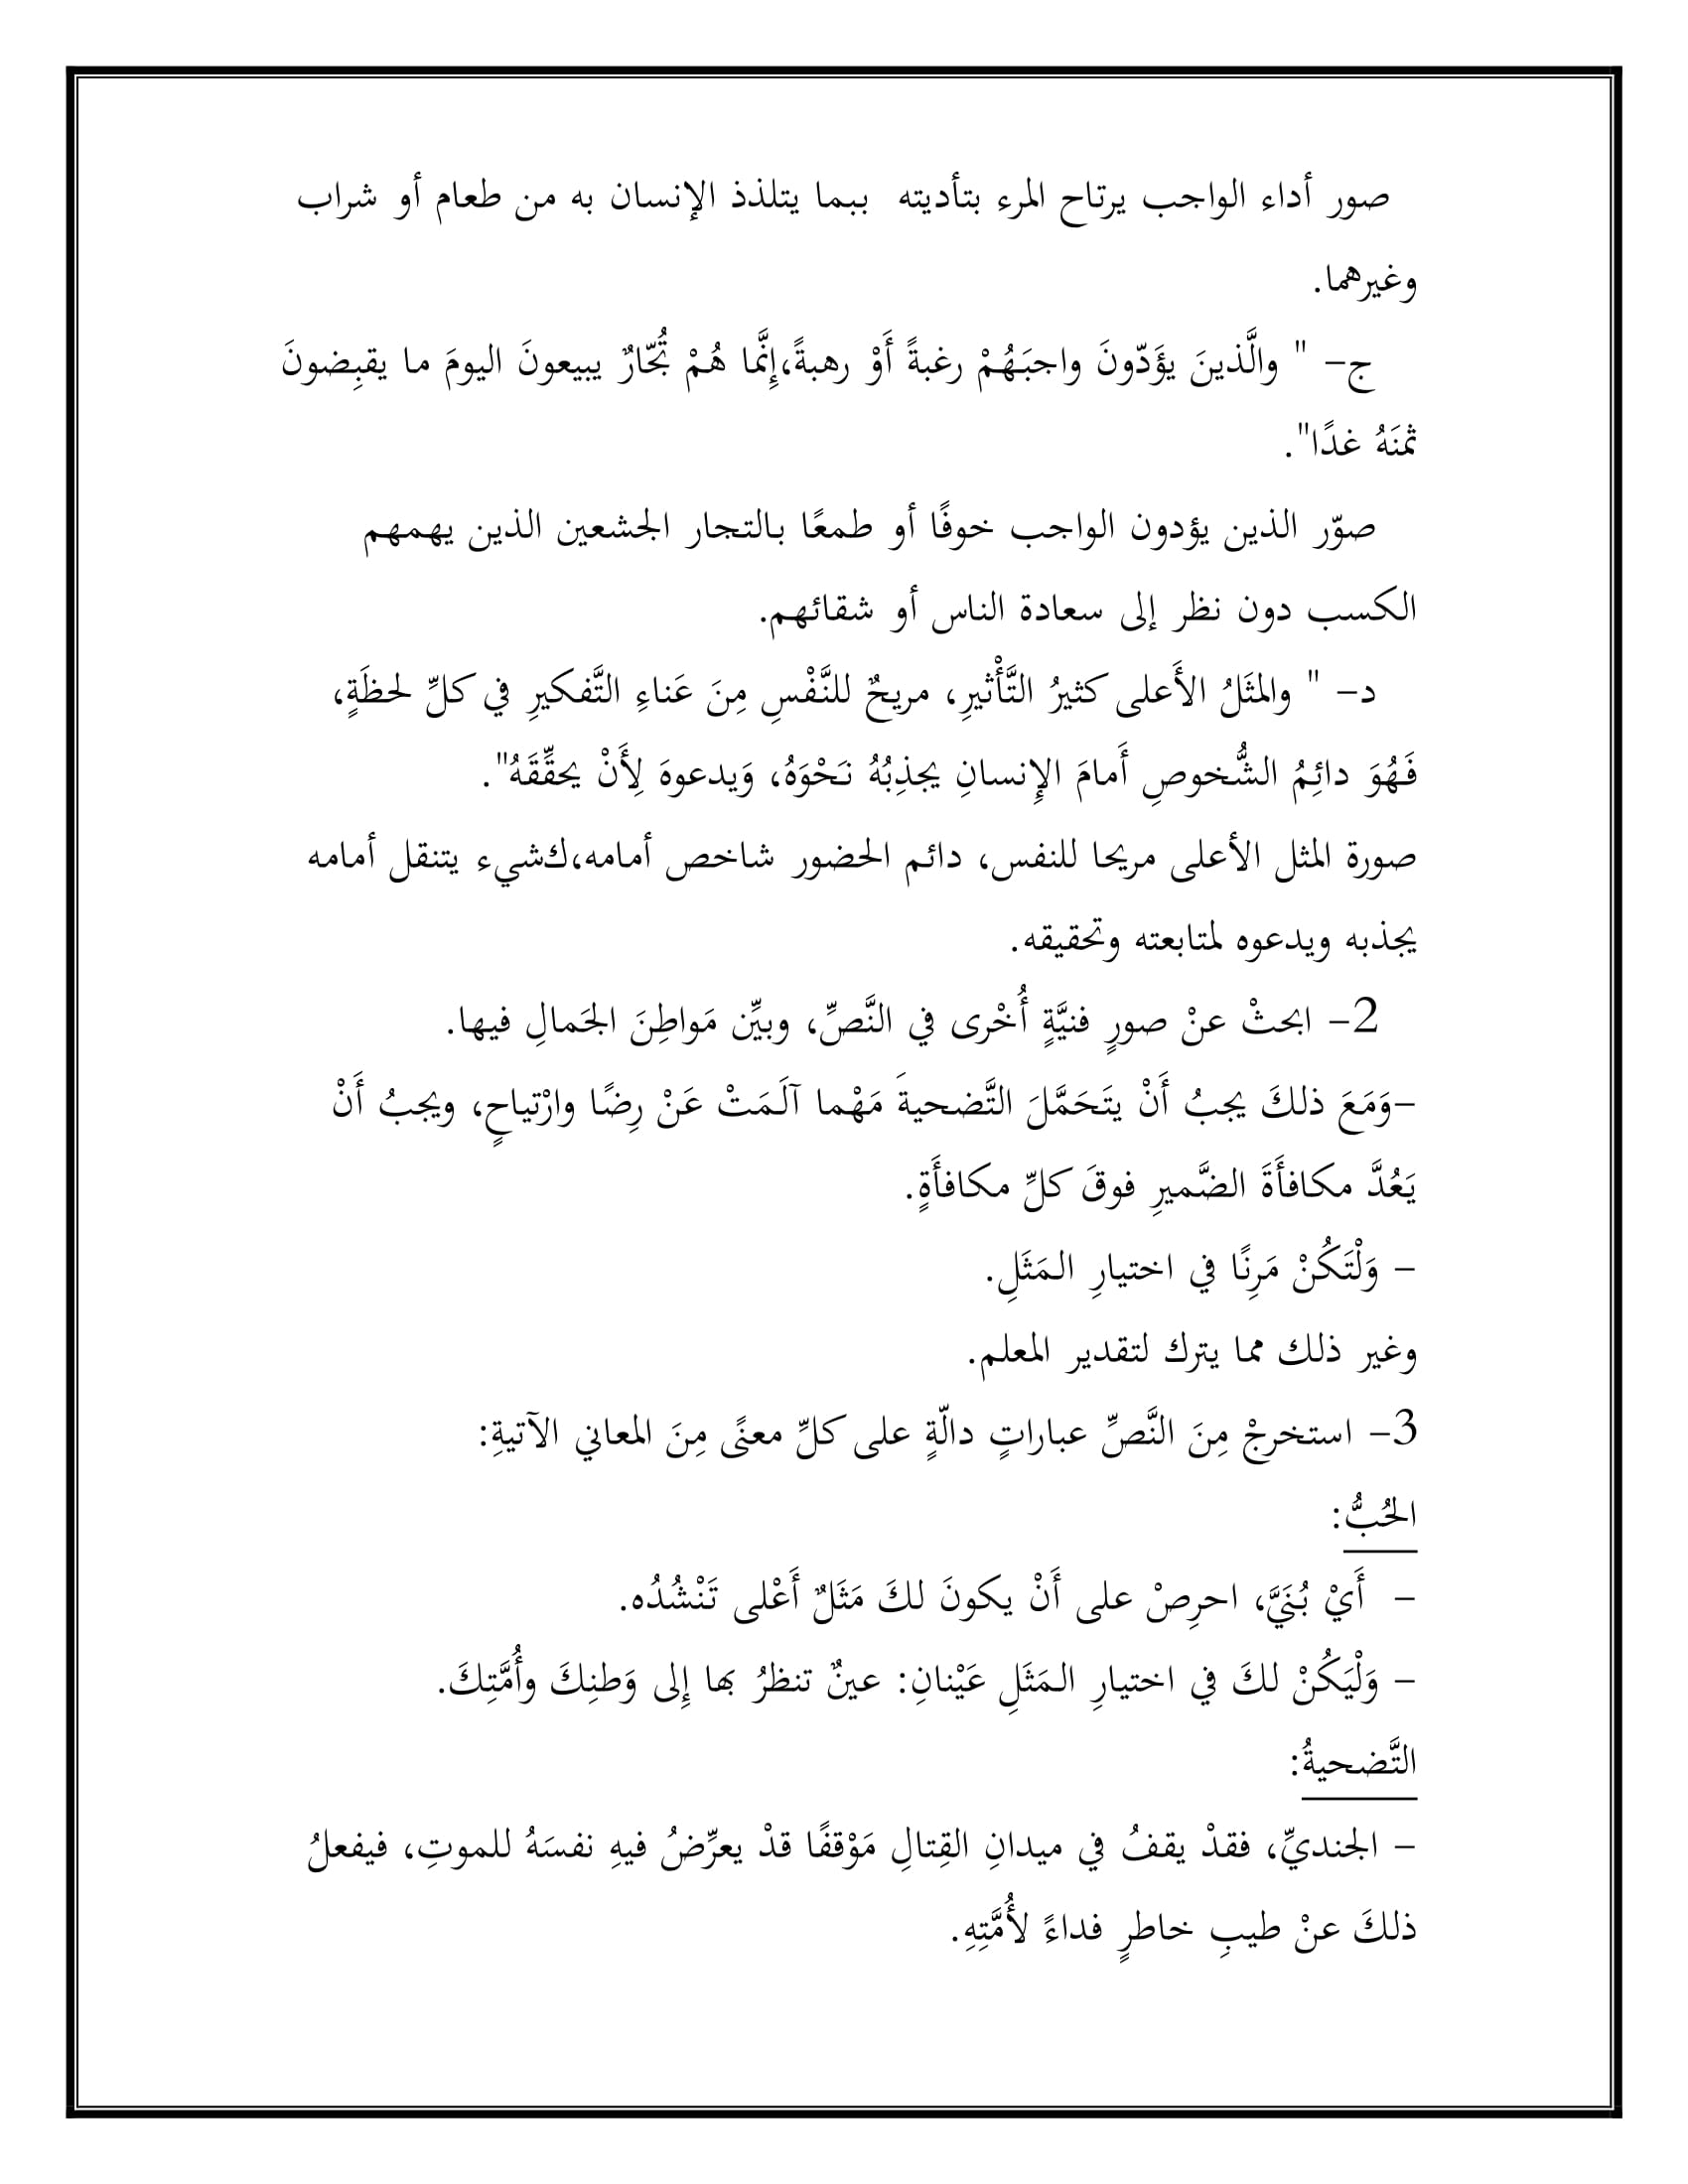 صور أداء الواجب يرتاح المرء بتأديته ببما يتلذذ الإنسان به من طعام أو شراب
وغيرهما.
ج- " والَّذينَ يؤَدّونَ واجبَهُمْ رغبةً أَوْ رهبةً،إِنَّما هُمْ تُجّارٌ يبيعونَ اليومَ ما يقبِضونَ
ثمنَهُ غدًا".
صوّر الذين يؤدون الواجب خوفًا أو طمعًا بالتجار الجشعين الذين يهمهم
الكسب دون نظر إلى سعادة الناس أو شقائهم.
د- " والمثَلُ الأَعلى كثيرُ التَّأْثيرِ، مريحٌ للنَّفْسِ مِنَ عَناءِ التَّفكيرِ في كلِّ لحظَةٍ،
فَهُوَ دائِمُ الشُّخوصِ أَمامَ الإِنسانِ يجذِبُهُ نَحْوَهُ، وَيدعوهَ لِأَنْ يحقِّقَهُ".
صورة المثل الأعلى مريحا للنفس، دائم الحضور شاخص أمامه،كشيء يتنقل أمامه
يجذبه ويدعوه لمتابعته وتحقيقه.
2- ابحثْ عنْ صورٍ فنيَّةٍ أُخْرى في النَّصِّ، وبيِّن مَواطِنَ الجَمالِ فيها.
-وَمَعَ ذلكَ يجبُ أَنْ يتَحَمَّلَ التَّضحيةَ مَهْما آلَمَتْ عَنْ رِضًا وارْتياحٍ، ويجبُ أَنْ
يَعُدَّ مكافأَةَ الضَّميرِ فوقَ كلِّ مكافأَةٍ.
- وَلْتَكُنْ مَرِنًا في اختيارِ المَثَلِ.
وغير ذلك مما يترك لتقدير المعلم.
3- استخرجْ مِنَ النَّصِّ عباراتٍ دالّةٍ على كلِّ معنًى مِنَ المعاني الآتيةِ:
الحُبُّ:
- أَيْ بُنَيَّ، احرِصْ على أَنْ يكونَ لكَ مَثَلٌ أَعْلى تَنْشُدُه.
- وَلْيَكُنْ لكَ في اختيارِ المَثَلِ عَيْنانِ: عينٌ تنظرُ بها إِلى وَطنِكَ وأُمَّتِكَ.
التَّضحيةُ:
- الجنديِّ، فقدْ يقفُ في ميدانِ القِتالِ مَوْقفًا قدْ يعرِّضُ فيهِ نفسَهُ للموتِ، فيفعلُ
ذلكَ عنْ طيبِ خاطرٍ فداءً لأُمَّتِهِ.